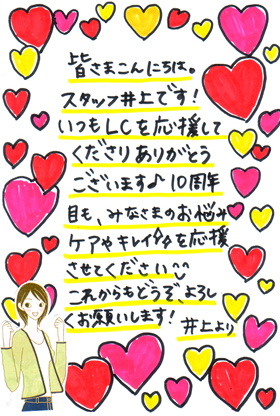 皆さまこんにちは。
スタッフ井上です!
いつもLCを応援して
くださりありがとう
ございます♪10周年
目も、みなさまのお悩み
ケアやキレイを応援
させてください
これからもどうぞ、よろし
くお願いします!
井上より